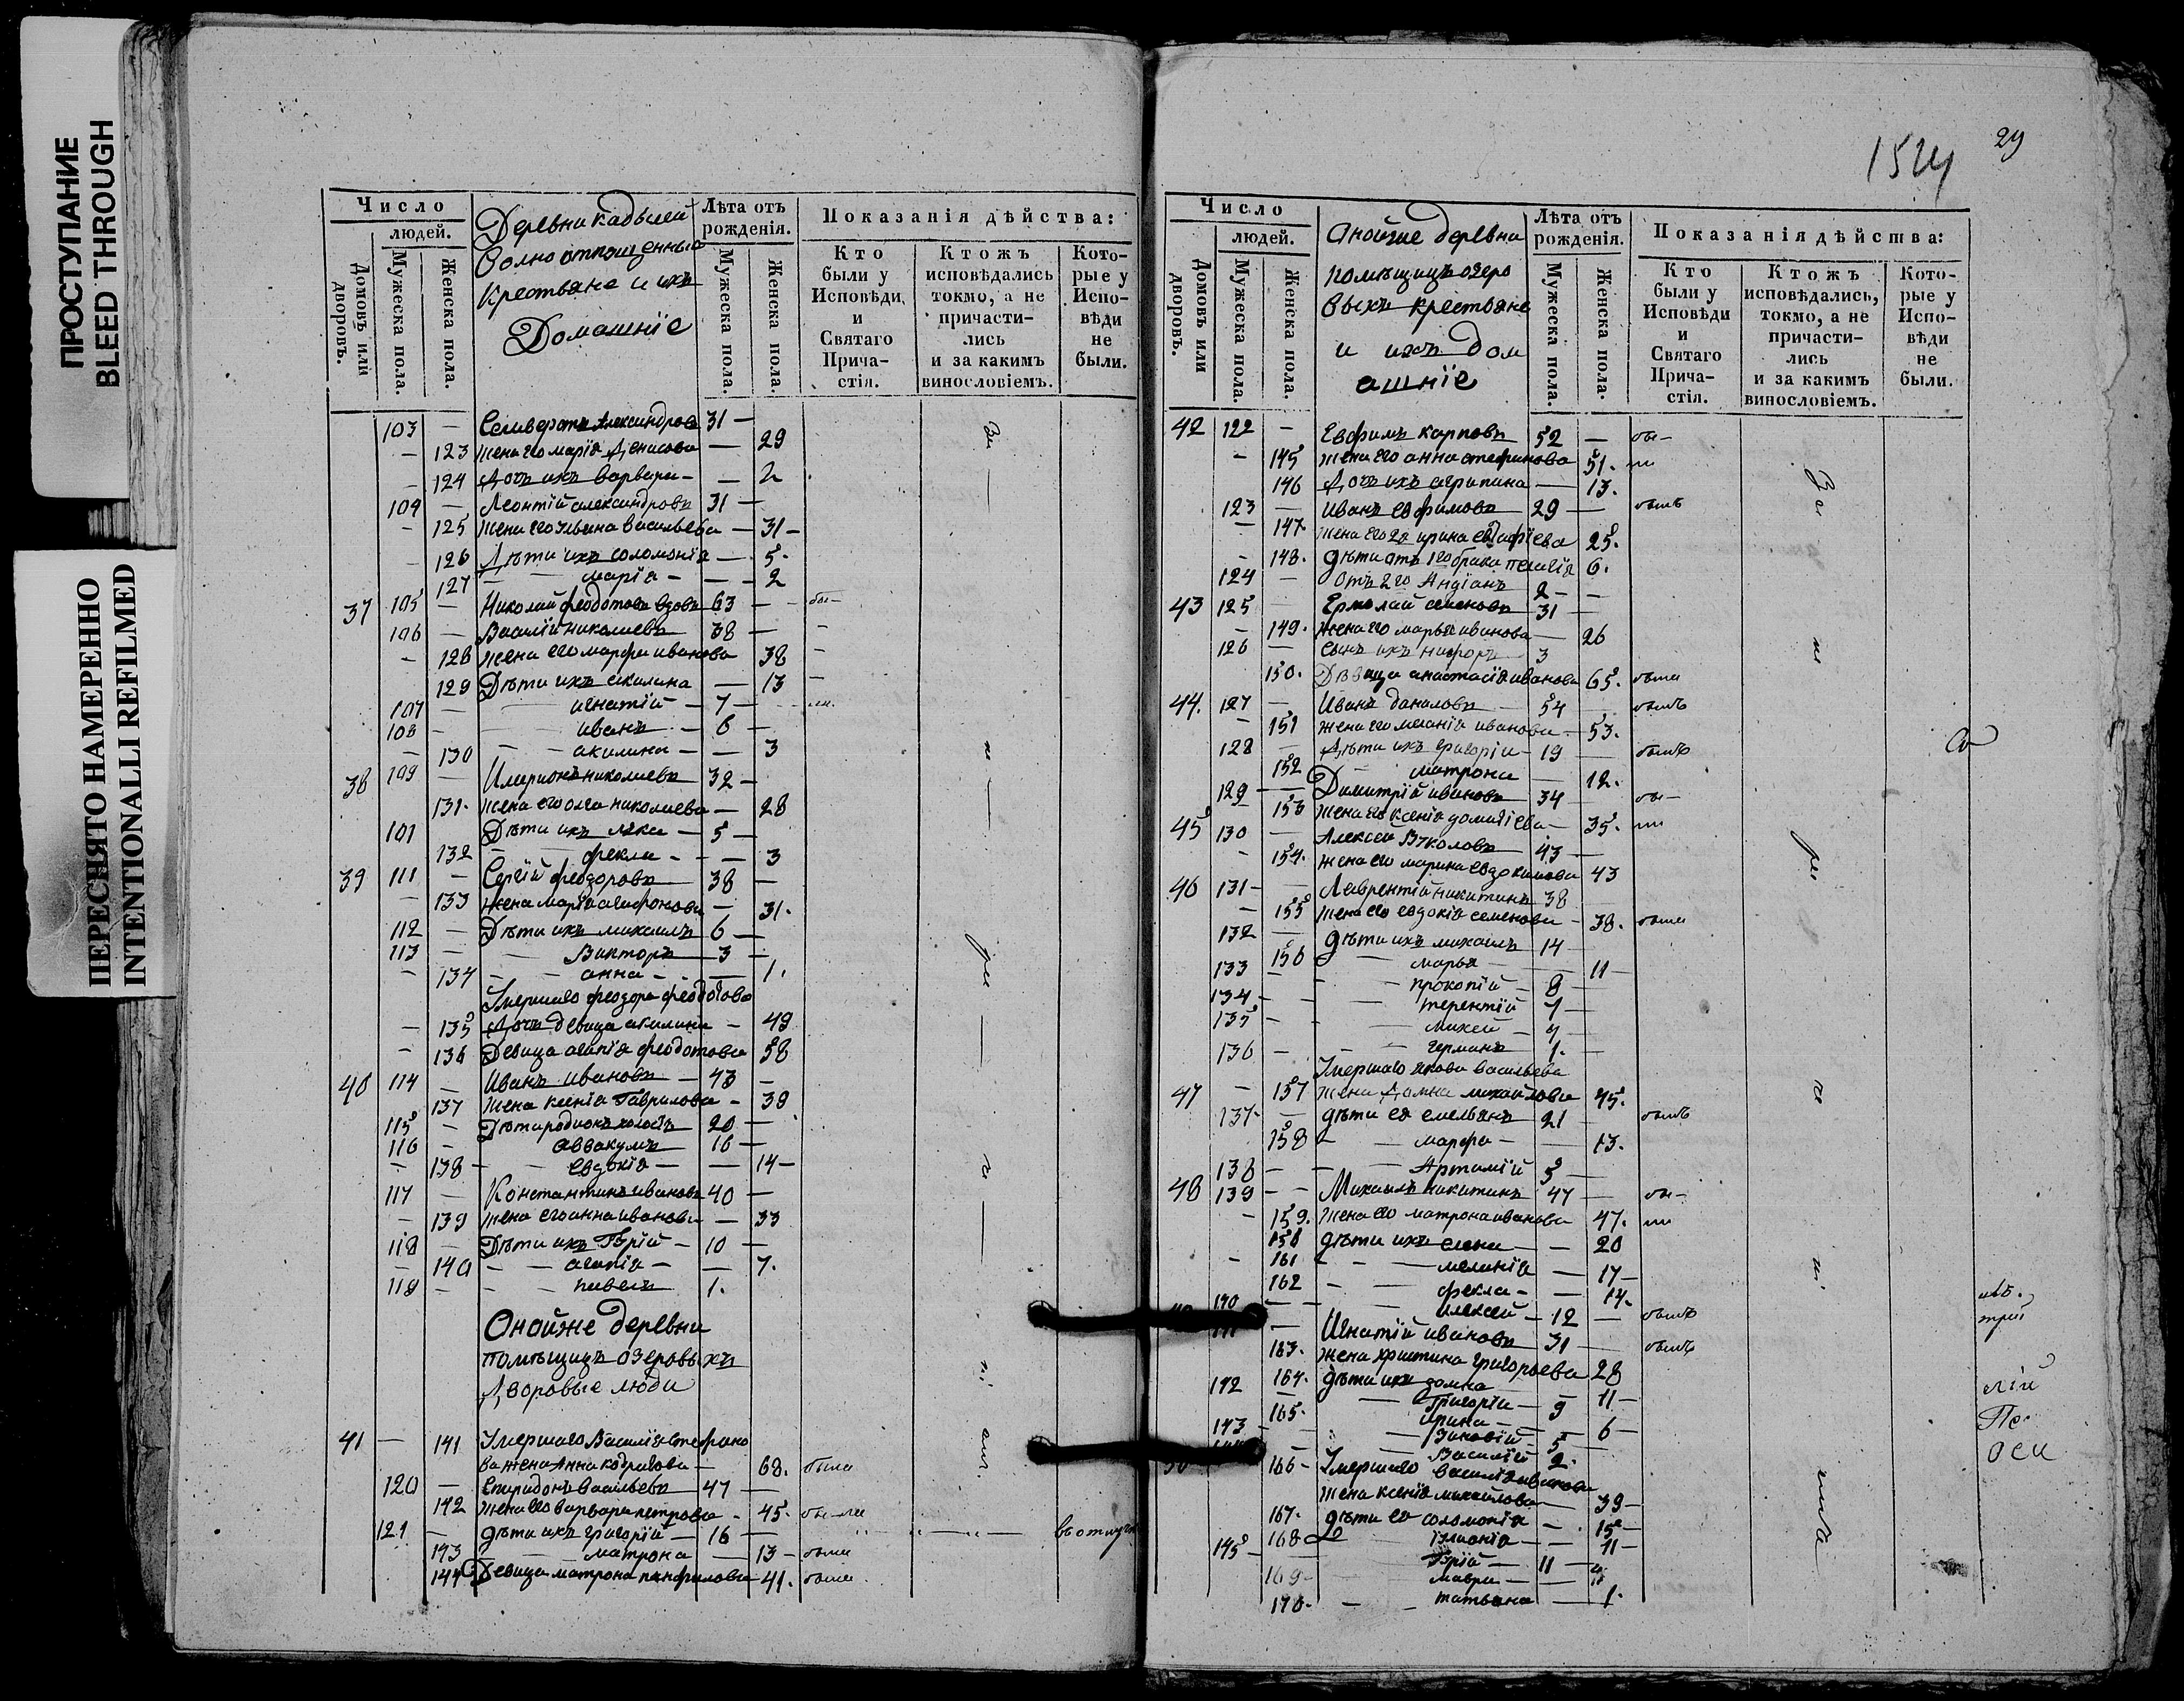 ПРОСТУПАНИЕ
BLEED THROUGH
ПЕРЕСНЯТО НАМЕРЕННО
INTENTIONALLI REFILMED
Число
людей.
Домовъ или дворовъ.
Мужеска пола.
Женска пола.
Деревни
Вольно отпущенныя
Крестьяне и ихъ
Домашніе
Лѣта отъ рожденія.
Мужеска пола.
Женска пола.
Показанія дѣйства:
Кто были у Исповѣди, и Святаго Прича- стія.
Ктожъ исповѣдались токмо, а не причасти- лись и за какимъ винословіемъ.
Кото- рые у Испо- вѣди не были.
103 — Селиверстъ Александровъ 31 —
— 123 жена его марія Денисова — 29
— 124 Дочь ихъ варвара — — 2
109 — Леонтій александровъ 31 —
— 125 жена его Ульяна Васильева — 31 —
— 126 Дѣти ихъ соломонія — 5.
127 — — марія — — 2
37 105 — Николай феодотовъ вдовъ 63 —
106 — Василій николаевъ 38 —
— 128 жена его марфа иванова 38
129 Дѣти ихъ акилина — 13
107 — — игнатій — 7 —
108 — — иванъ — 6 —
— 130 — — акилина — — 3
38 109 — Иларионъ николаевъ 32 —
131. жена его олга николаева — 28
101 Дѣти ихъ лука — 5 —
132 — — фекла — — 3
39 111 — Сергій феодоровъ 38 —
— 133 жена марія агафонова — 31.
112 — Дѣти ихъ михаилъ 6 —
113 — — Викторъ — 3 —
— 134 — — анна — — 1.
Умершаго феодора феодотова
— 135 Дочь девица акилина — 49
— 136 Девица агапія феодотова 58
40 114 — Иванъ Ивановъ — 43 —
137 жена ксенія Гаврилова — 39
115 — Дѣти родионъ холостъ 20 —
116 — Аввакумъ — 16 —
— 138 — — евдокія — — 14 —
117 — Константинъ ивановъ 40 —
— 139 жена его анна иванова — 33
118 — Дѣти ихъ Гурій — 10 —
— 140 — — агапія — — 7.
119 — — павелъ 1.
Онойже деревни
помѣщицъ озеровыхъ
Дворовые люди
41 — 141 Умершаго Василія Стефано
ва жена Анна — 68. была
120 — Спиридонъ Васильевъ 47 —
142 жена его варвара петрова — 45. были
121 — дѣти ихъ григорій — 16 — въ отлуч
143 — матрона — 13 — были
144 Девица матрона панфилова 41. была
29
Число
людей.
Домовъ или дворовъ.
Мужеска пола.
Женска пола.
Онойже деревни
помѣщицъ озеро
выхъ крестьяне
и ихъ дом
ашніе
Лѣта отъ рожденія.
Мужеска пола.
Женска пола.
Показанія дѣйства:
Кто были у Исповѣди и Святаго Прича- стія.
Ктожъ исповѣдались, токмо, а не причасти- лись и за какимъ винословіемъ.
Кото- рые у Испо- вѣди не были.
42 122 — Евфимъ карповъ 52 — бы-
— 145 жена его анна стефанова 51. ли
146 Дочь ихъ агрипина — 13.
123 — Иванъ евфимовъ 29 — былъ
— 147. жена его 2я ирина 25.
— 148. дѣти отъ 1го брака пелагія 6.
124 — отъ 2го 2 —
43 125 — Ермолай семеновъ 31 —
— 149. жена его марья иванова — 26
126 — сынъ ихъ 3
150. Девица анастасія иванова 65. была
44. 127 — Иванъ даниловъ 54 — былъ
— 151 жена его меланія иванова — 53.
128 — Дѣти ихъ григорій — 19 — былъ
152 — матрона — 12.
129 — Димитрій ивановъ 34 — бы-
— 153 жена его ксенія — 35. ли
45 130 — Алексей Вуколовъ 43 —
— 154. жена его марина евдокимова 43
46 131 — Лаврентій никитинъ 38 —
— 155 жена его евдокія семенова — 38. была
132 — дѣти ихъ михаилъ 14
156 — марья — 11 —
133 — — прокопій — 8 —
134 — — терентій — 7 —
135 — — михей — 4 —
136 — — германъ 1. —
Умершаго якова васильева
47 — 157 жена Домна михаилова 45.
137. — дѣти ея емельянъ 21 — былъ
158 — — марфа — — 13.
138 — — Артамій 5 —
48 139 — — Михаилъ никитинъ 47 — бы-
— 159. жена его матрона иванова 47. ли
150 дѣти ихъ елена — 20
— 161 — — меланія — 17 —
162 — — фекла — — 14.
140 — — алексей — 12 — былъ
— Игнатій ивановъ 31 — былъ
163. жена христина григорьева 28
164. дѣти ихъ домна — 11 —
142 — Григорій — 9
165. — Ирина — — 6 —
143 — Зиновій — 5 —
Василій 2.
166 — Умершаго василія иванова
жена ксенія михаилова — 39 —
167. дѣти ея соломонія — 15 —
168 — — 11 —
145 — Гурій — 11 —
169 — мавра —
170. — — татьяна — 1.